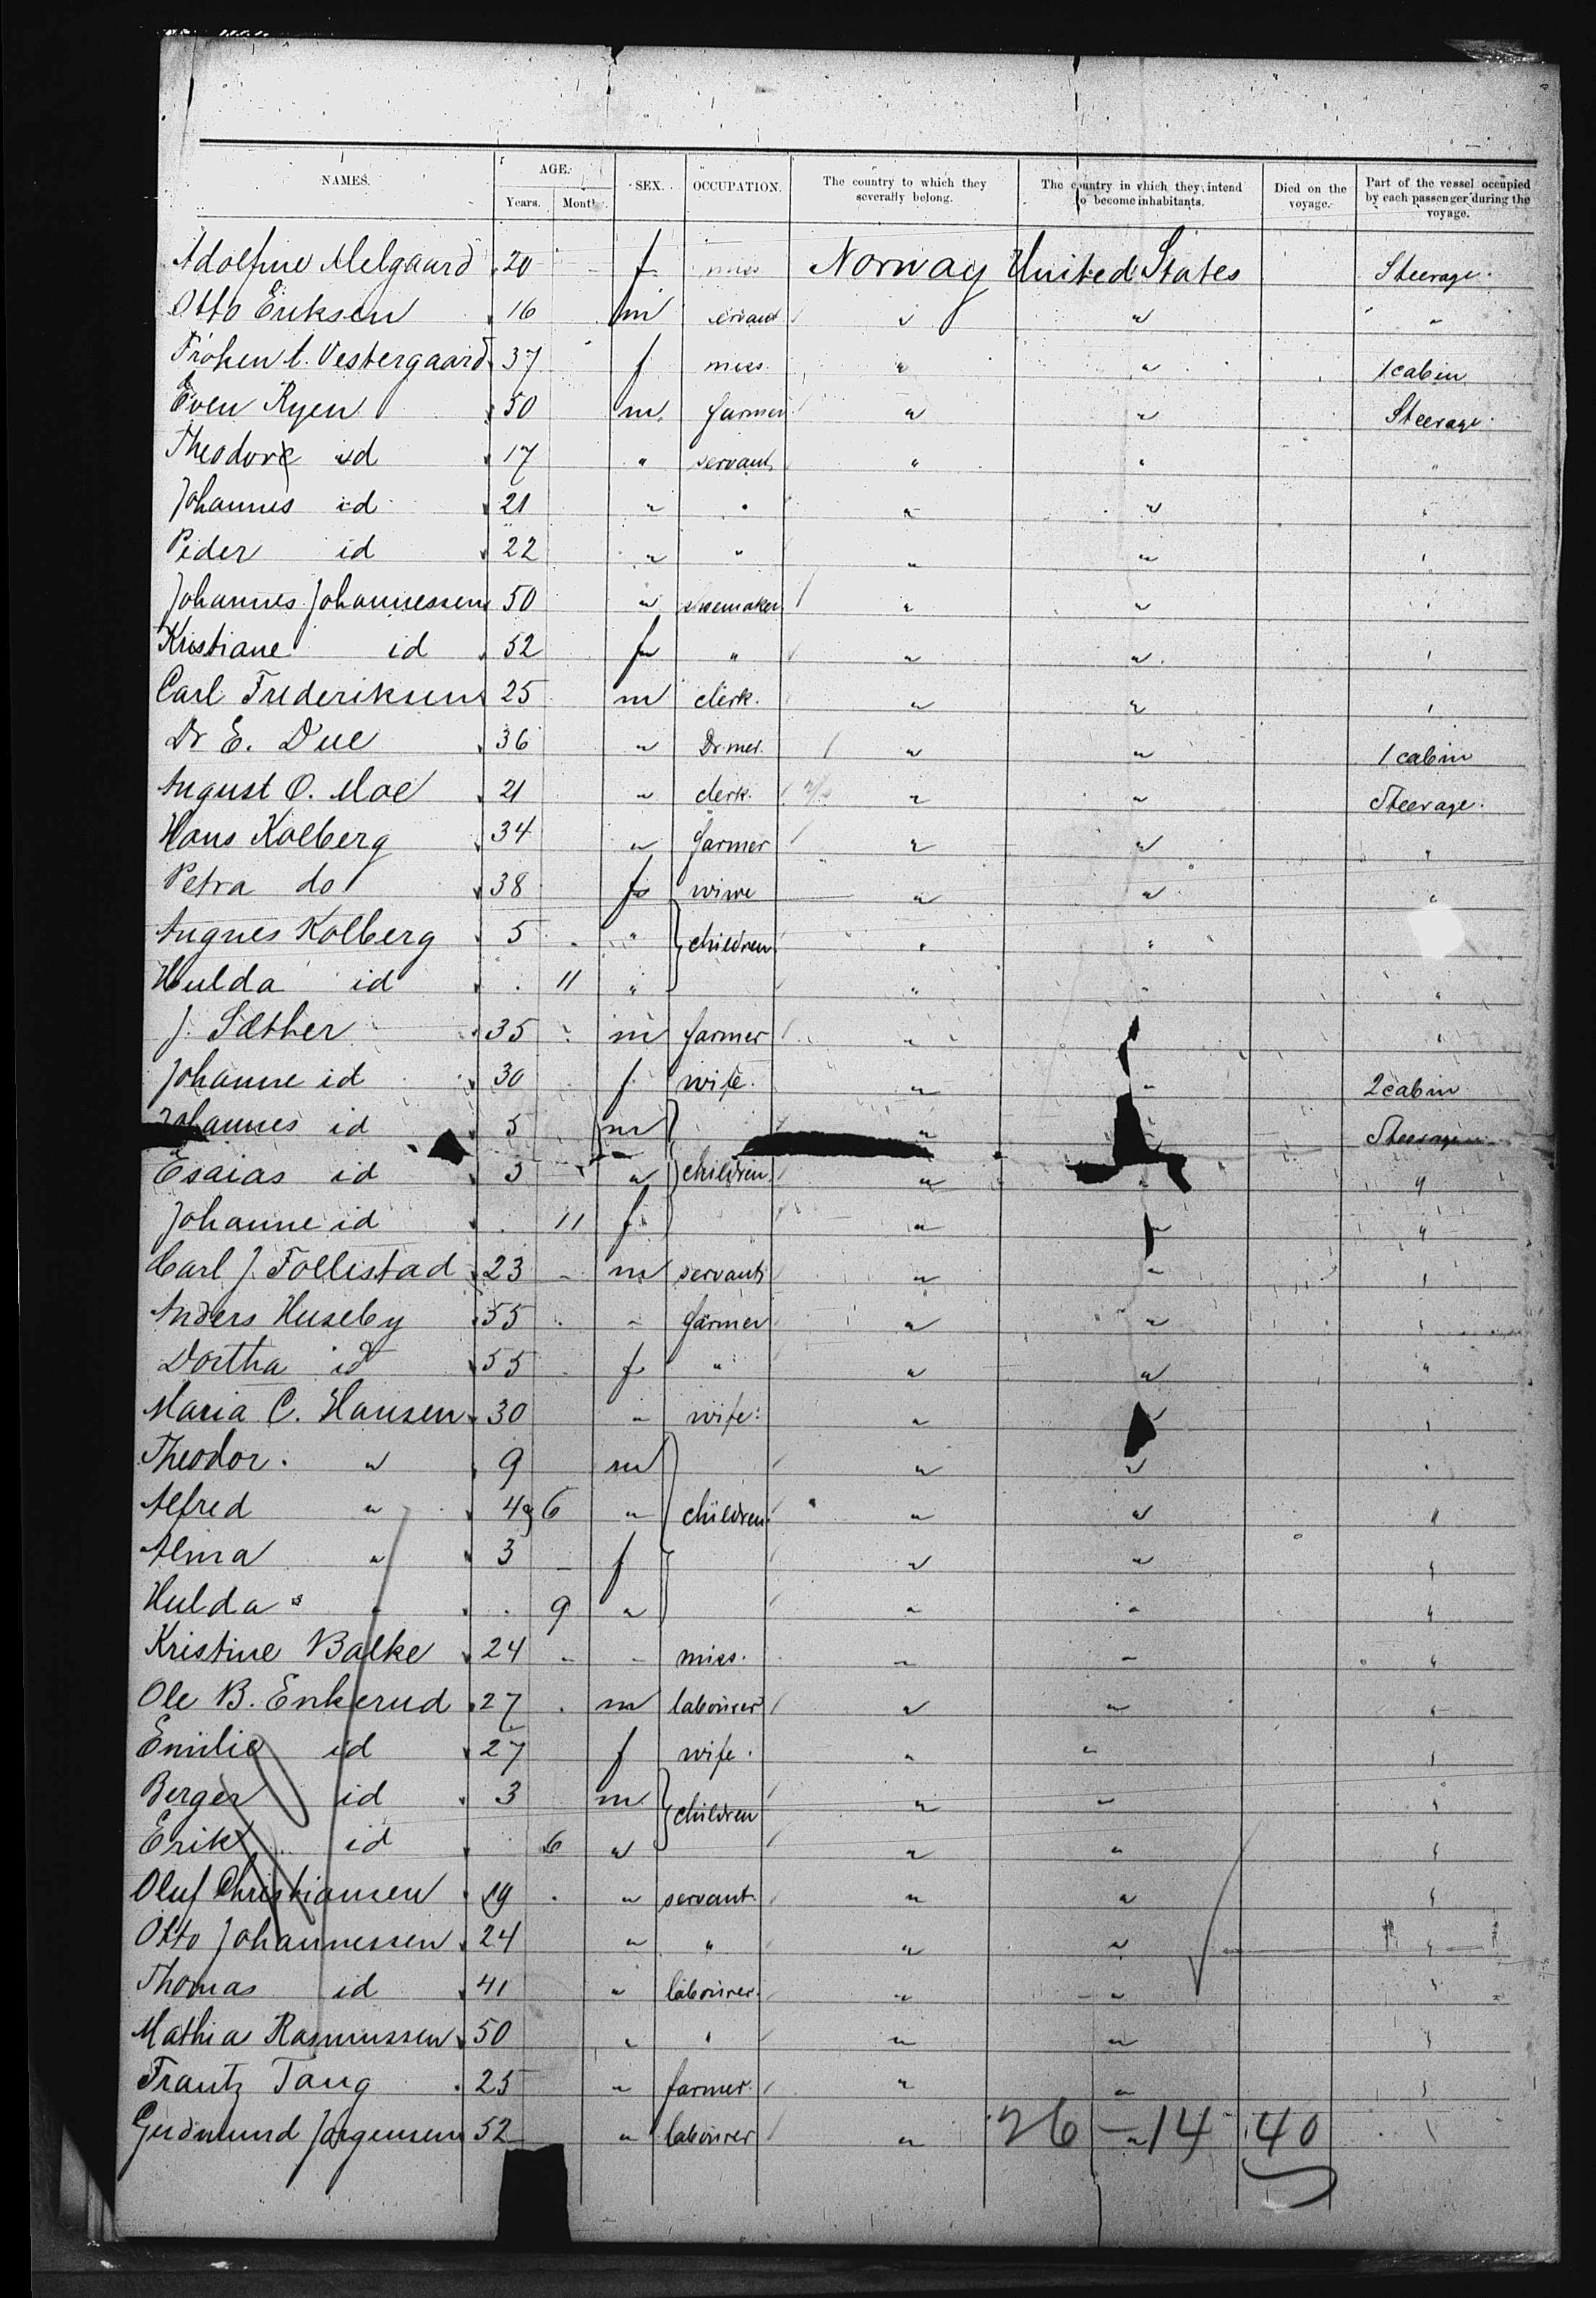 NAMES. AGE. SEX. OCCUPATION. The country to which they severally belong. The country in which they intend to become inhabitants. Died on the voyage. Part of the vessel occupied by each passenger during the voyage.
Years. Month
Adolfine Melgaard 20 f miss Norway United States Steerage.
Otto Eriksen 16 m servant " " "
Frøken t. Vestergaard 37 f miss " " 1 cabin
Even Ryen 50 m farmer " " Steerage
Theodor id 17 " servant " " "
Johannes id 21 " " " " "
Peder id 22 " " " " "
Johannes Johannessen 50 " shoemaker " " "
Kristiane id 52 f " " " "
Carl Frederiksen 25 m clerk. " " "
Dr E. Due 36 " Dr. med. " " 1 cabin
August O. Moe 21 " clerk. " " Steerage.
Hans Kolberg 34 " farmer " " "
Petra do 38 f wiwe " " "
Augnes Kolberg 5 " children " "
Hulda id 11 " " " "
J. Sæther 35 m farmer " "
Johanne id 30 f wife. " " 2 cabin
Johannes id 5 m " Steerage
Esaias id 3 " children " " "
Johanne id 11 f " " "
Carl J. Follistad 23 m servant " " "
Anders Huseby 55 " farmer " " "
Dortha id 55 f " " " "
Maria C. Hansen 30 " wife. " " "
Theodor. " 9 m " " "
Alfred " 4 6 " children " " "
Alma " 3 f " " "
Hulda " 9 " " " "
Kristine Balke 24 " miss. " " "
Ole B. Enkerud 27 m labourer " " "
Emilie id 27 f wife. " " "
Berger id 3 m children " " "
Erik id 6 " " " "
Oluf Christiansen 19 " servant " " "
Otto Johannessen 24 " " " " "
Thomas id 41 " labourer " " "
Mathia Rasmussen 50 " " " " "
Frantz Tang 25 " farmer " " "
Gudmund Jørgensen 52 " labourer " " "
26 - 14 40